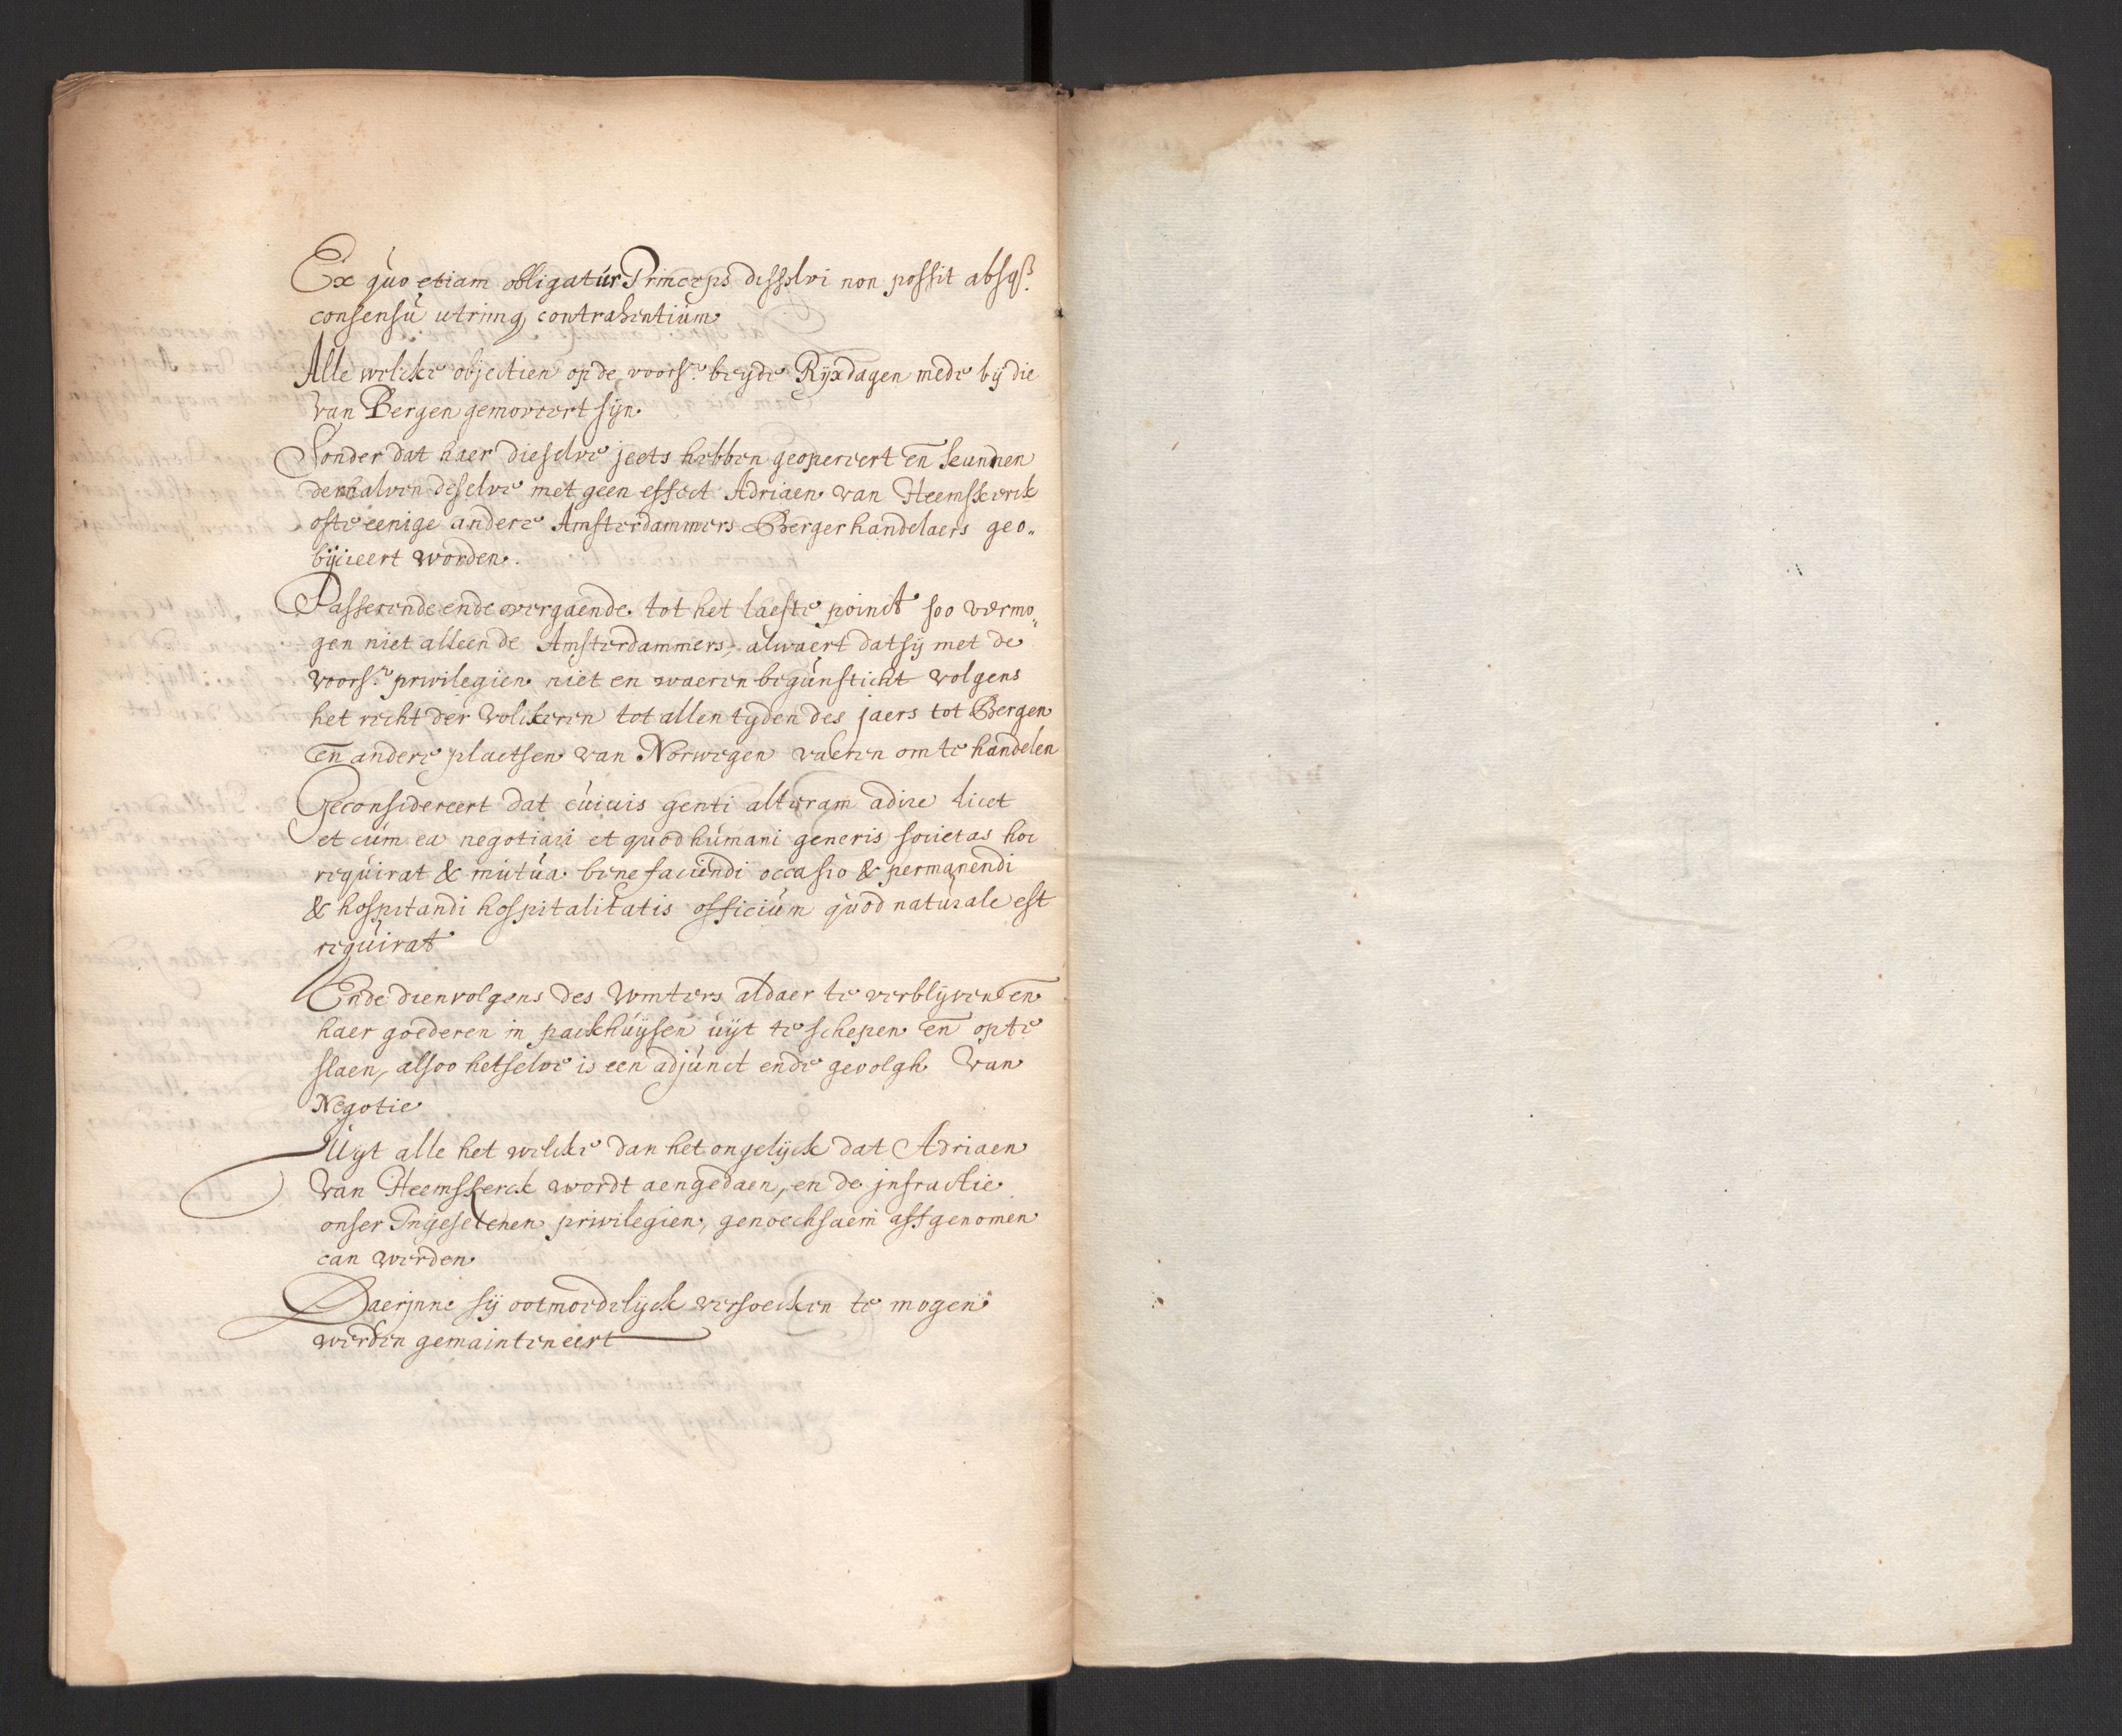 Ex quo etiam obligatur Princeps dissolvi non possit absq₃
consensu utrimq₃ contrahentium
Alle welcke objectien op de voors. beyde Ryxdagen mede by die
van Bergen gemoveert syn
Sonder dat haer dieselve jeets hebben geopereert en kunnen
derhalven deselve met geen effect Adriaen van Heemskerck
ofte eenige andere Amsterdammers Berger handelaers geo„
bijcieert worden.
Passerende ende overgaende tot het laeste poinct soo vermo„
gen niet alleen de Amsterdammers, alwaert dat sy met de
voors. privilegien niet en waeren begunsticht volgens
het recht der volckeren tot allen tyden des jaers tot Bergen
en andere plaetsen van Norwegen vaeren om te handelen
Geconsidereert dat cuivis genti alteram adire licet
et cum ea negotiari et quod humani generis societas hoc
requirat & mutua benefaciendi occasio & permanendi
& hospitandi hospitalitatis officium quod naturale est
requirat
Ende dienvolgens des winters aldaer te verblyven en
haer goederen in packhuysen uyt te schepen en op te
slaen, alsoo hetselve is een adjunct ende gevolgh van
Negotie
Uyt alle het welcke dan het ongelyck dat Adriaen
van Heemskerck wordt aengedaen, en de jnfractie
onser Ingesetenen privilegien, genoechsaem affgenomen
can werden
Daerjnne sy ootmoedelyck versoecken te mogen
werden gemainteneert